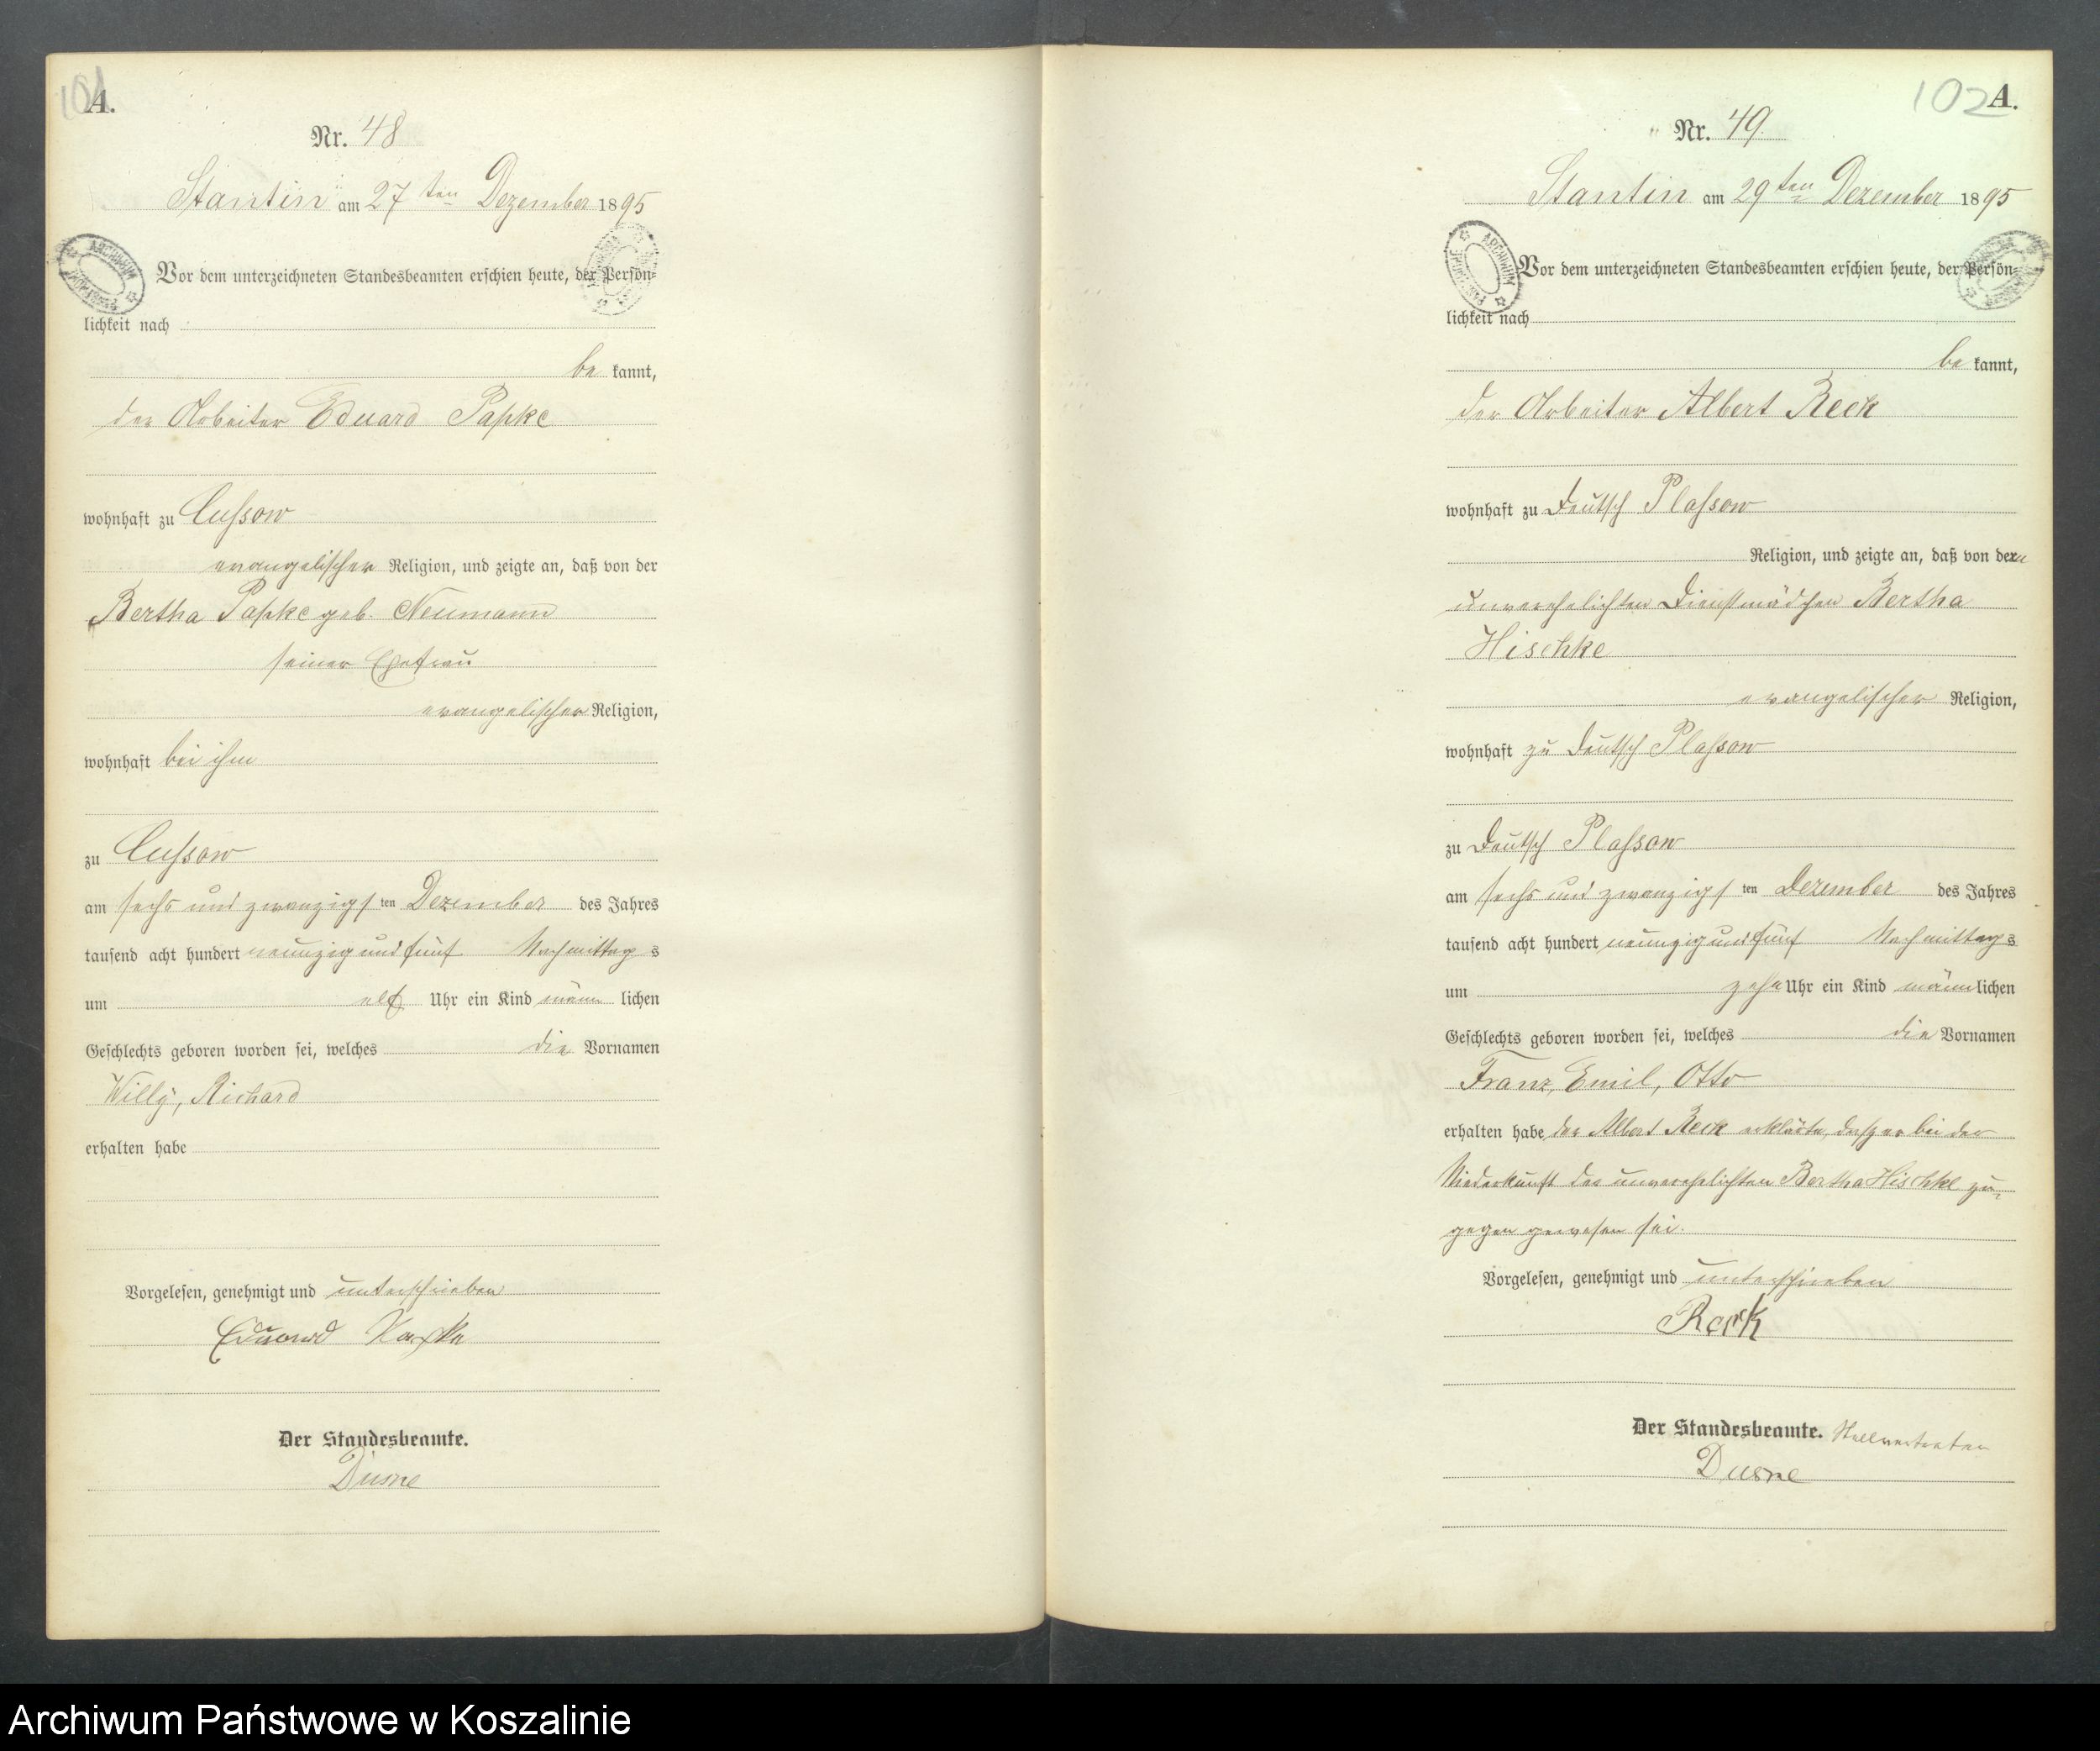 101
A.
Nr. 48
Stantin am 27 ten Dezember 1895
Vor dem unterzeichneten Standesbeamten erschien heute, der Persön-
lichkeit nach
be kannt,
der Arbeiter Eduard Papke
wohnhaft zu Cussow
evangelischer Religion, und zeigte an, daß von der
Bertha Papke geb. Neumann
seiner Ehefrau
evangelischer Religion,
wohnhaft bei ihm
zu Cussow
am sechs und zwanzigsten Dezember des Jahres
tausend acht hundert neunzig und fünf Nachmittags
um elf Uhr ein Kind männlichen
Geschlechts geboren worden sei, welches die Vornamen
Willy, Richard
erhalten habe
Vorgelesen, genehmigt und unterschrieben
Eduard Papke
Der Standesbeamte.
102 A.
Nr. 49
Stantin am 29 ten Dezember 1895
Vor dem unterzeichneten Standesbeamten erschien heute, der Persön-
lichkeit nach
be kannt,
der Arbeiter Albert Reck
wohnhaft zu Deutsch Plassow
Religion, und zeigte an, daß von der
unverehelichten Dienstmädchen Bertha
Hischke
evangelischer Religion,
wohnhaft zu Deutsch Plassow
zu Deutsch Plassow
am sechs und zwanzigsten Dezember des Jahres
tausend acht hundert neunzig und fünf Nachmittags
um zehn Uhr ein Kind männlichen
Geschlechts geboren worden sei, welches die Vornamen
Franz, Emil, Otto
erhalten habe der Albert Reck erklärte, dass er bei der
Niederkunft der unverehelichten Bertha Hischke zu-
gegen gewesen sei.
Vorgelesen, genehmigt und unterschrieben
Reck
Der Standesbeamte. Stellvertreter
Archiwum Państwowe w Koszalinie